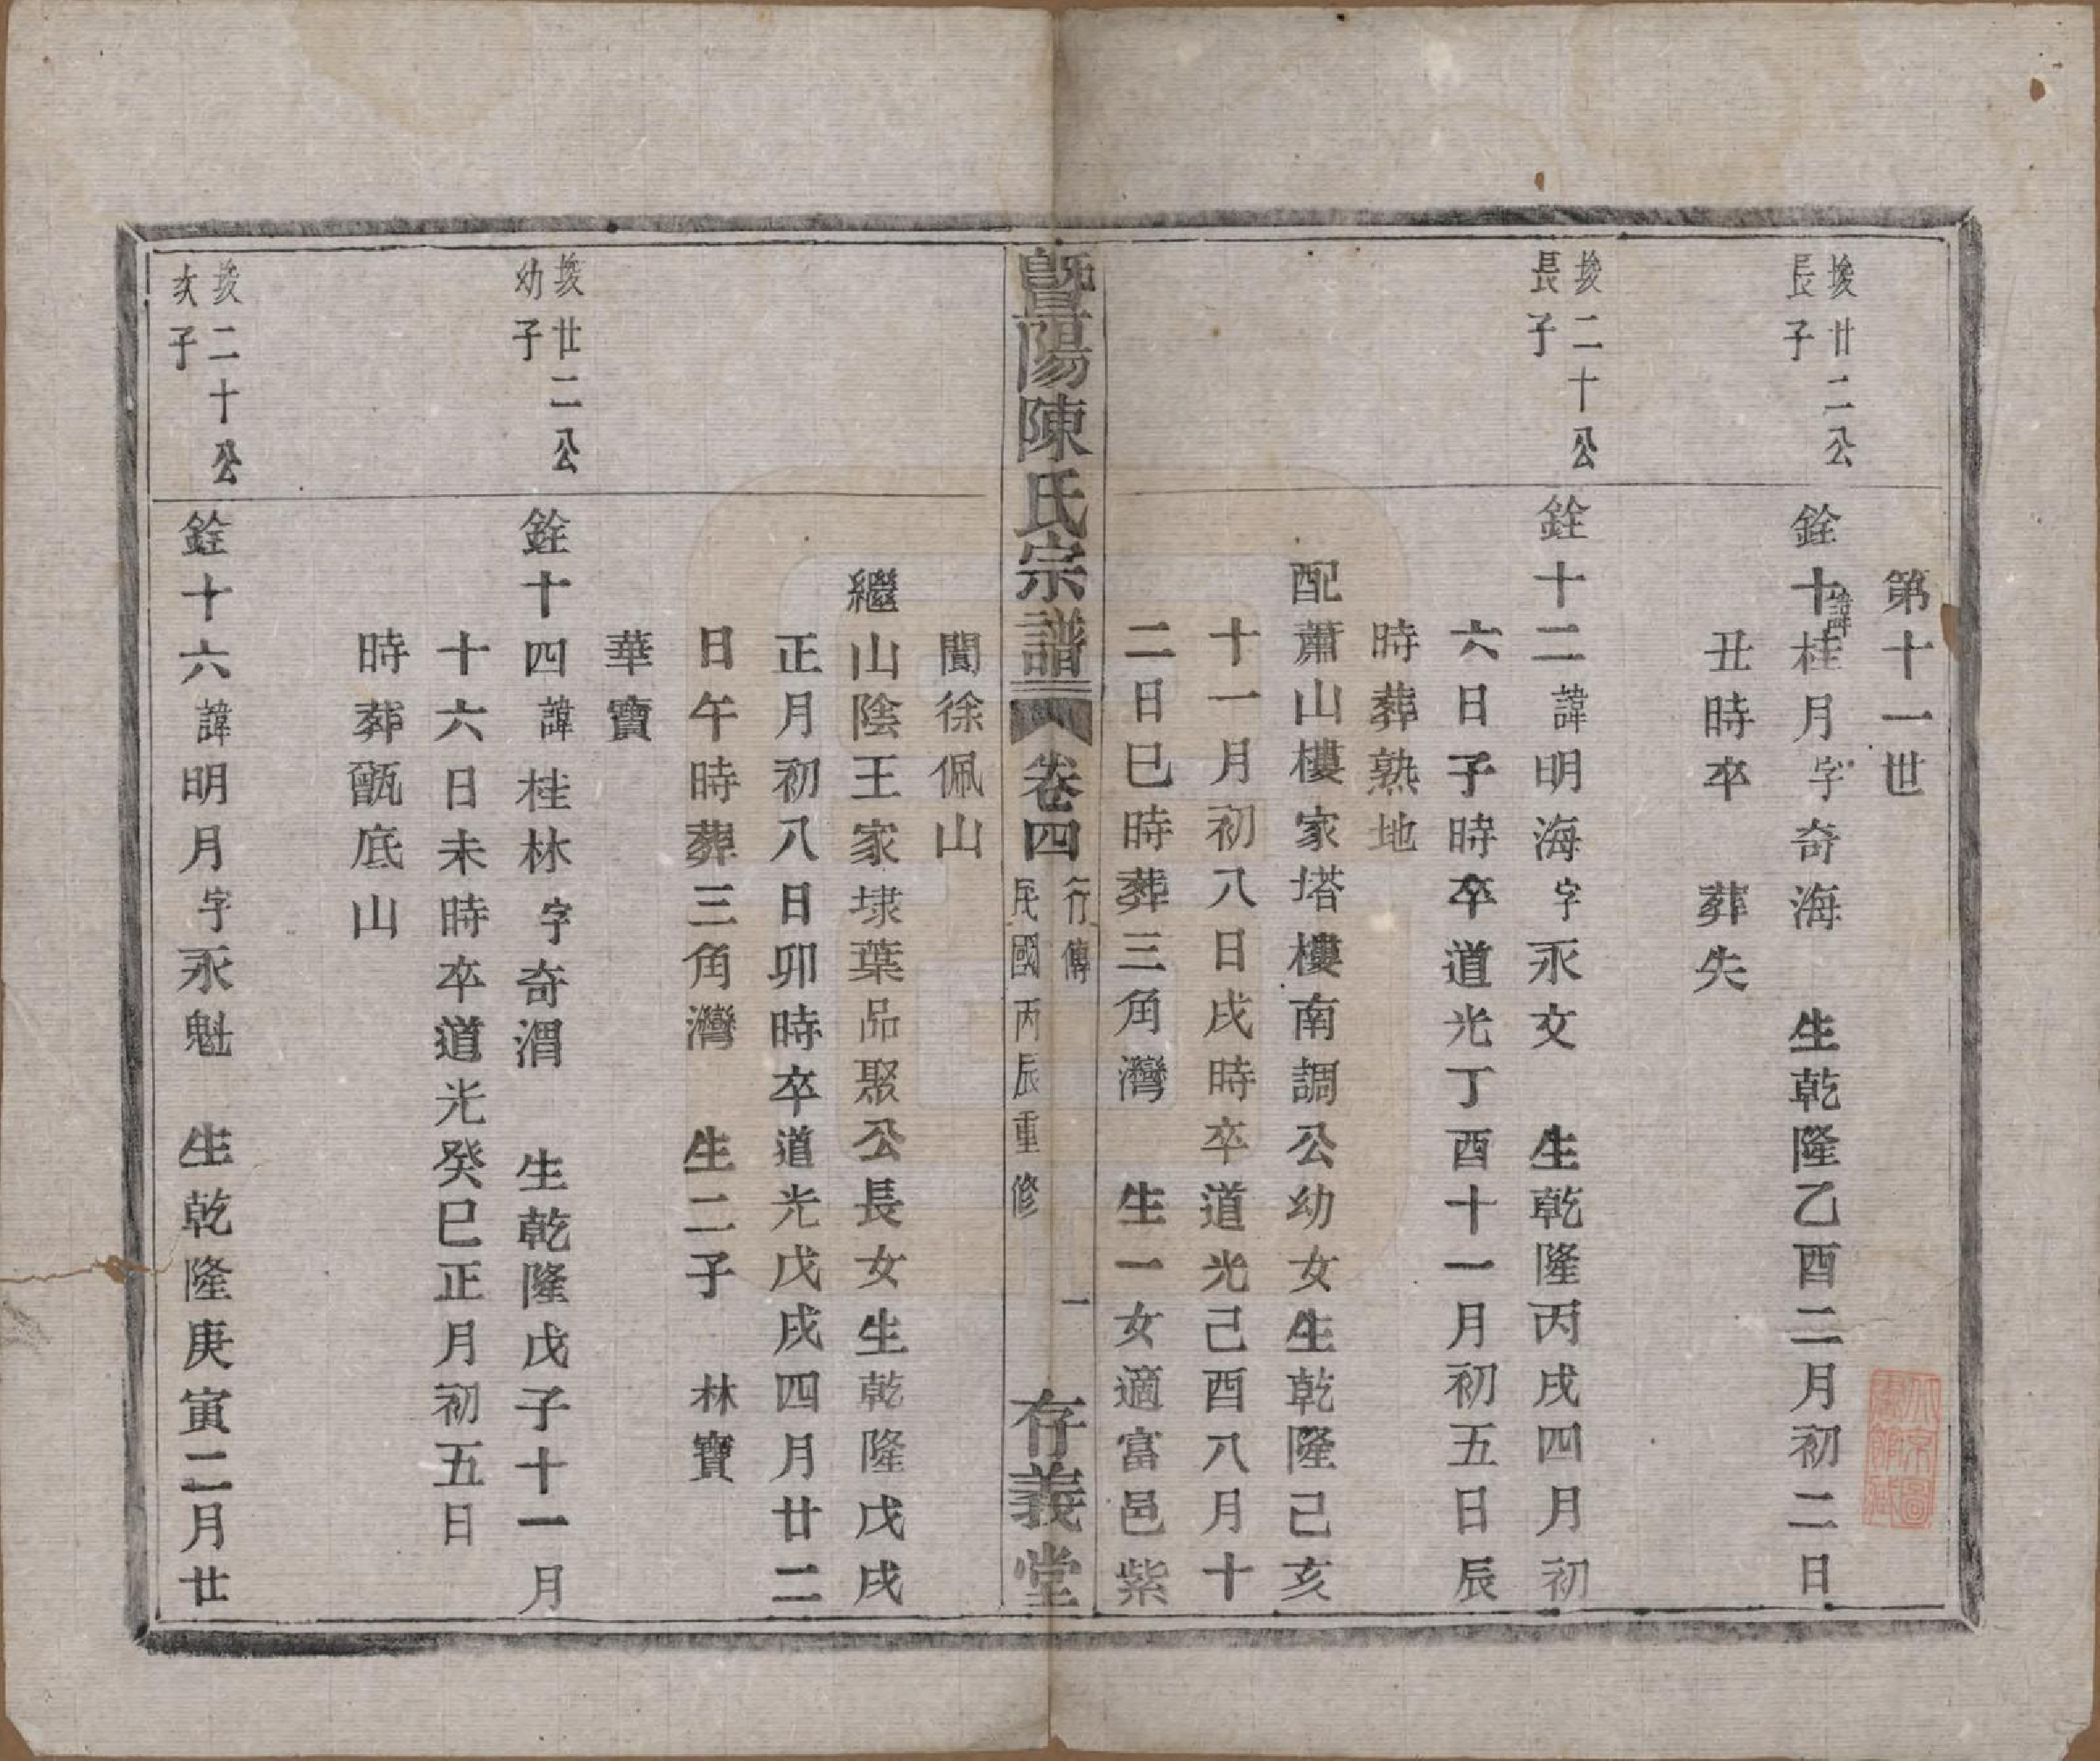 第十一世
埈廿二公
長子
銓十諱桂月字奇海　生乾隆乙酉二月初二日
丑時卒　葬失
埈二十公
長子
銓十二諱明海字永文　生乾隆丙戌四月初
六日子時卒道光丁酉十一月初五日辰
時葬熟地
配蕭山樓家塔樓南調公幼女生乾隆己亥
十一月初八日戌時卒道光己酉八月十
二日巳時葬三角灣　生一女適富邑紫
暨陽陳氏宗譜
卷四
行傳
民國丙辰重修
一
存義堂
閬徐佩山
繼山陰王家埭葉品聚公長女生乾隆戊戌
正月初八日卯時卒道光戊戌四月廿二
日午時葬三角灣　生二子　林寶
華寶
埈廿二公
幼子
銓十四諱桂林字奇渭　生乾隆戊子十一月
十六日未時卒道光癸巳正月初五日
時葬甑底山
埈二十公
次子
銓十六諱明月字永魁　生乾隆庚寅二月廿